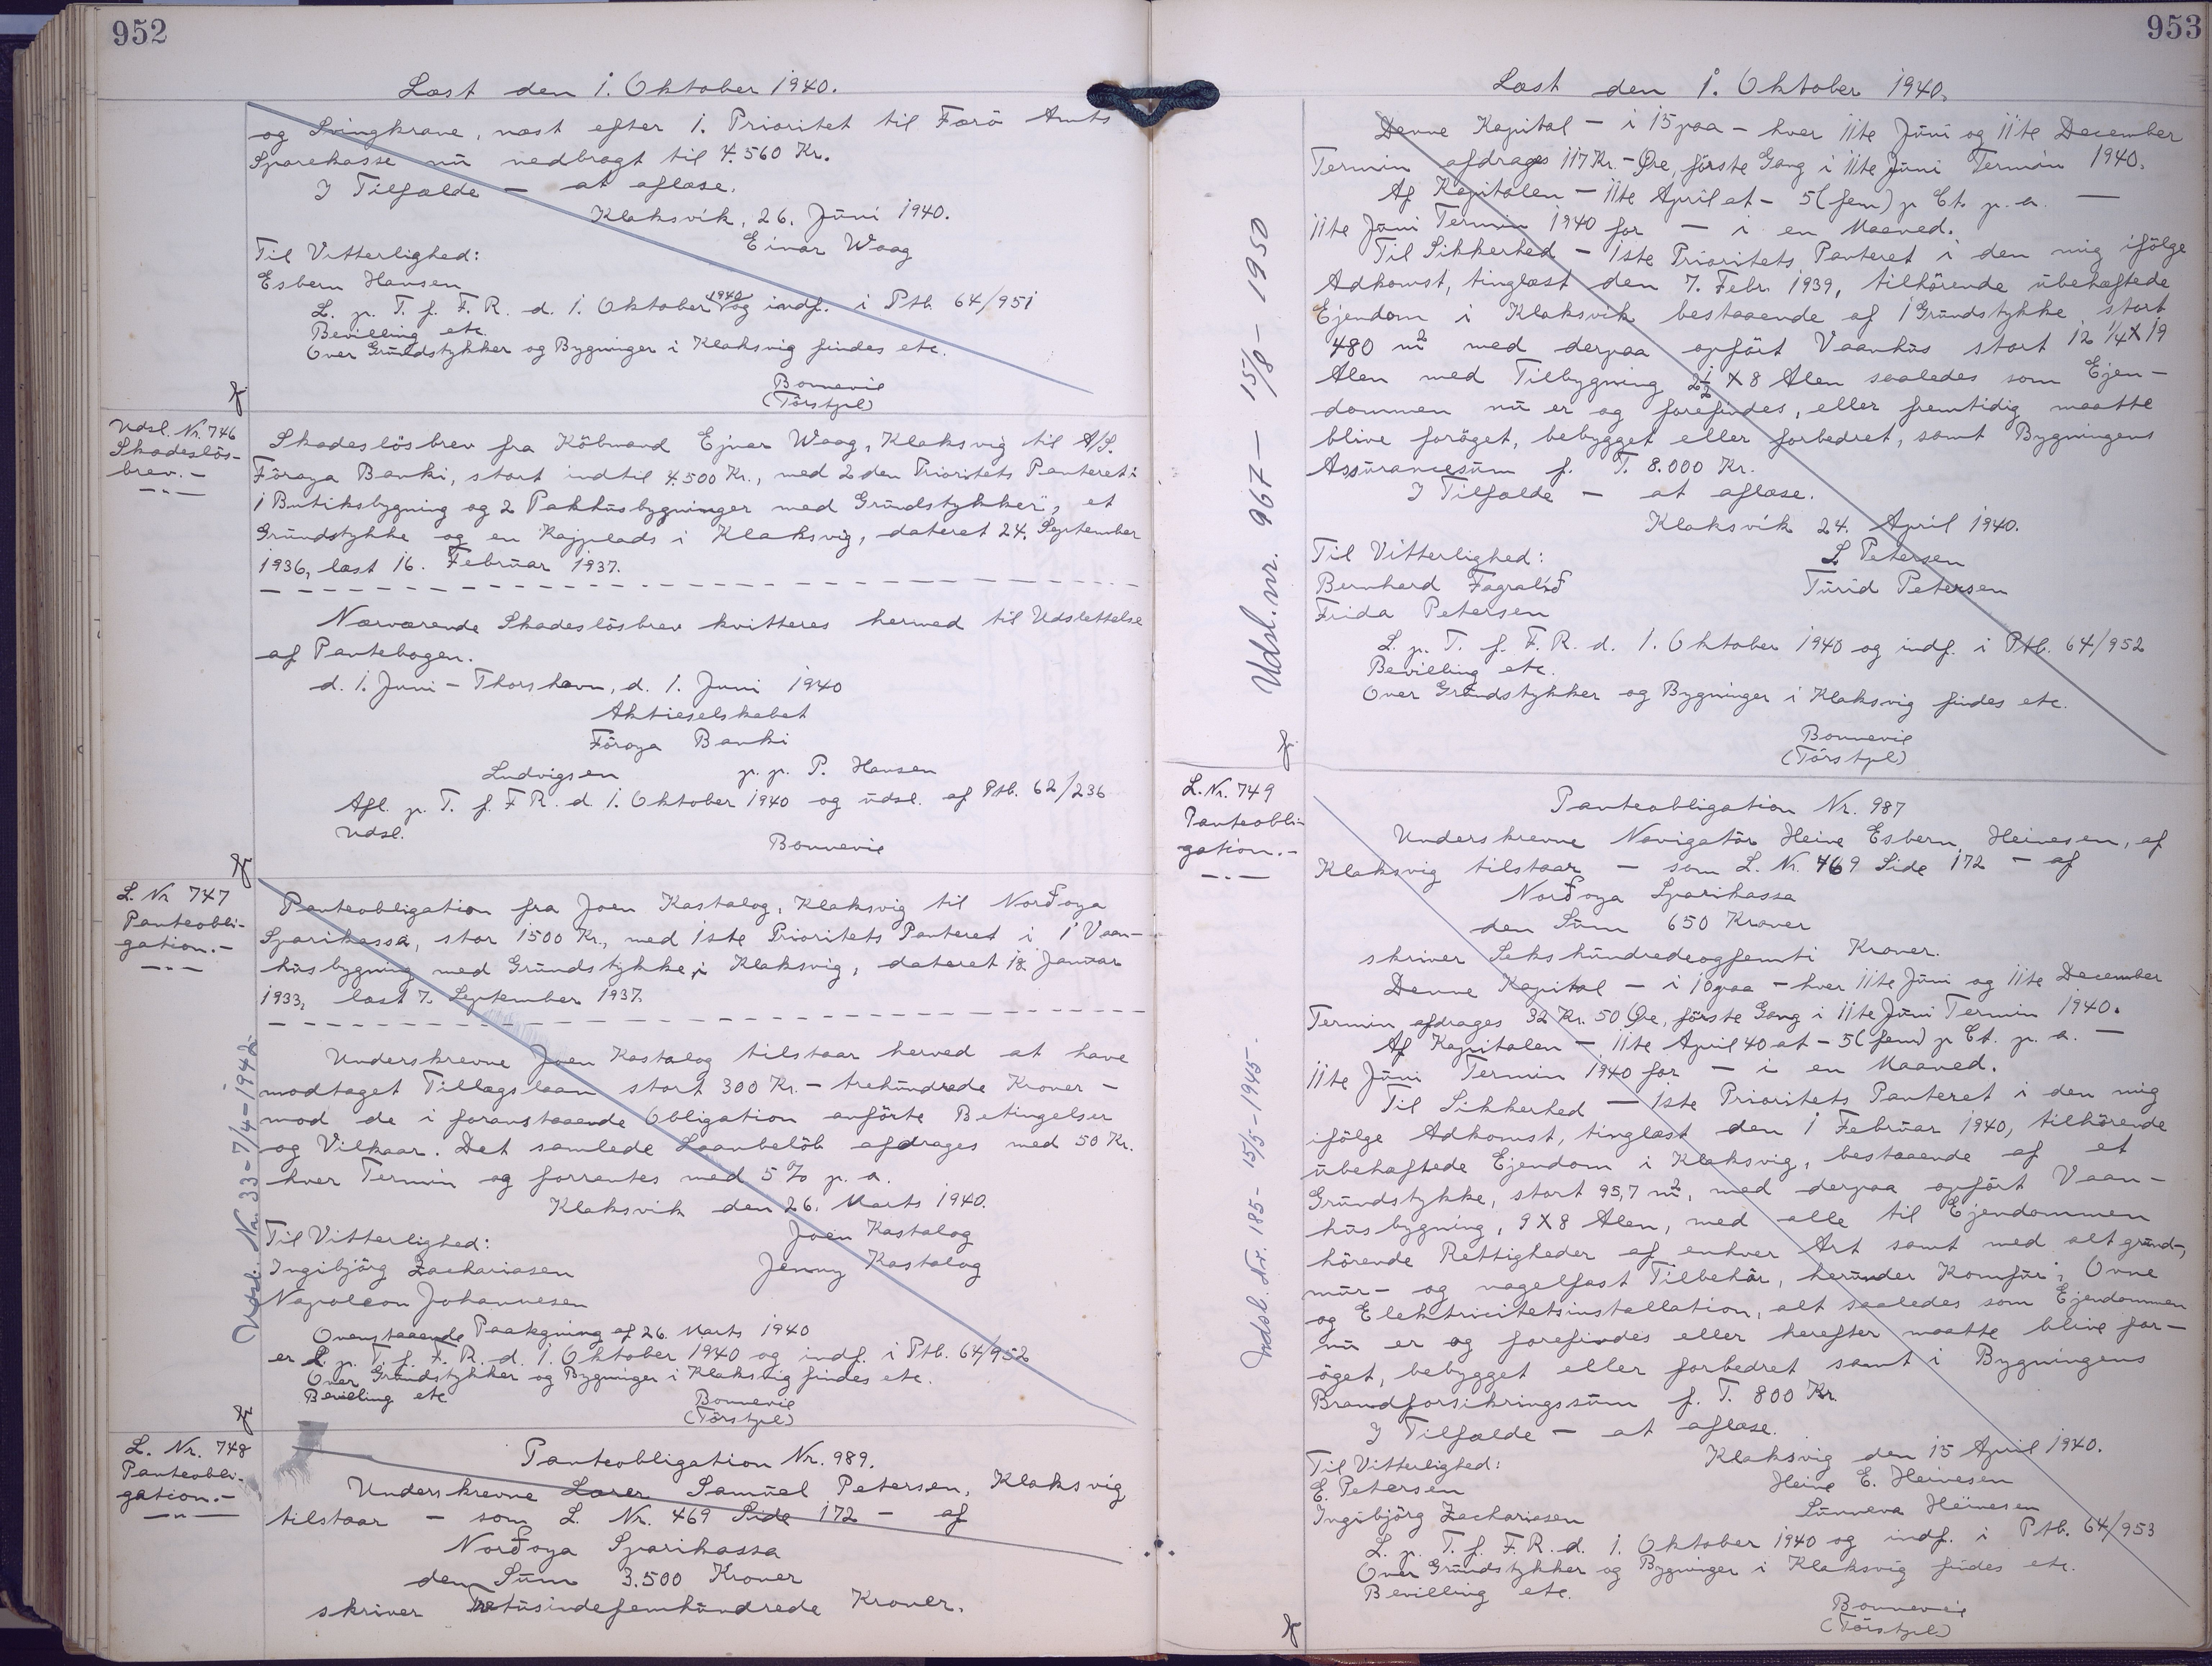 952
Læst den 1. Oktober 1940.
og Svingkrane, næst efter 1. Prioritet til Færö Amts
Sparekasse nu nedbragt til 4.560 Kr.
I Tilfælde — at aflæse.
Klaksvik, 26. Juni 1940.
Einar Waag
Til Vitterlighed:
Esbern Hansen
L. p. T. f. F. R. d. 1. Oktober 1940 og indf. i Ptb. 64/951
Bevilling etc.
Over Grundstykker og Bygninger i Klaksvig findes etc.
Bonnevie
(Törstpl)
Udsl. Nr. 746
Skadeslös-
brev.-
Skadeslösbrev fra Köbmand Ejnar Waag, Klaksvig til A/S.
Föroya Banki, stort indtil 4.500 Kr., med 2den Prioritets Panteret i
1 Butiksbygning og 2 Pakhusbygninger med Grundstykker, et
Grundstykke og en Kajplads i Klaksvig, dateret 24. September
1936, læst 16. Februar 1937.
Nærværende Skadeslösbrev kvitteres hermed til Udslettelse
af Pantebogen.
d. 1. Juni - Thorshavn, d. 1. Juni 1940
Aktieselskabet
Föroya Banki
Ludvigsen p. p. P. Hansen
Afl. p. T. f. F R. d. 1. Oktober 1940 og udsl. af Ptb. 62/236
Udsl.
Bonnevie
L. Nr 747
Panteobli-
gation.-
Udsl. Nr. 33 - 7/4 -
Panteobligation fra Joen Kastalog, Klaksvig til Norðoya
Sparikassa, stor 1500 Kr., med 1ste Prioritets Panteret i 1 Vaan-
husbygning med Grundstykke i Klaksvig, dateret 18. Januar
1933, læst 7. September 1937.
Underskrevne Joen Kastalog tilstaar herved at have
modtaget Tillægslaan stort 300 Kr. - trehundrede Kroner -
mod de i foranstaaende Obligation anförte Betingelser
og Vilkaar. Det samlede Laanbelöb afdrages med 50 Kr.
hver Termin og forrentes med 5 % p. a.
Klaksvik den 26. Marts 1940.
Til Vitterlighed: Joen Kastalog
Ingibjörg Zachariasen Jenny Kastalog
Napoleon Johannesen
Ovenstaaende Paategning af 26. Marts 1940
er L. p. T. f. F. R. d. 1. Oktober 1940 og indf. i Ptb. 64/952
Over Grundstykker og Bygninger i Klaksvig findes etc.
Bevilling etc
Bonnevie
(Törstpl)
L. Nr. 748
Panteobli-
gation.-
Panteobligation Nr. 989.
Underskrevne Lærer Samuel Petersen, Klaksvig
tilstaar — som L. Nr. 469 Side 172 — af
Norðoya Sparikassa
den Sum 3.500 Kroner
skriver Tretusindefemhundrede Kroner.
953
Læst den 1. Oktober 1940.
Denne Kapital — i 15 paa — hver 11te Juni og 11te December
Termin afdrages 117 Kr. - Øre, förste Gang i 11te Juni Termin 1940.
Af Kapitalen — 11te April at — 5 (fem) p Ct. p. a. —
11te Juni Termin 1940 for — i en Maaned.
Til Sikkerhed — 1ste Prioritets Panteret i den mig ifölge
Adkomst, tinglæst den 7. Febr. 1939, tilhörende ubehæftede
Ejendom i Klaksvik bestaaende af 1 Grundstykke stort
480 m² med derpaa opfört Vaanhus stort 12 1/4 X 19
Alen med Tilbygning 2½ X 8 Alen saaledes som Ejen-
dommen nu er og forefindes, eller fremtidig maatte
blive foröget, bebygget eller forbedret, samt Bygningens
Assurancesum f. T. 8.000 Kr.
I Tilfælde — at aflæse.
Klaksvik 24. April 1940.
Til Vitterlighed: S. Petersen
Bernhard Fagralíð Turid Petersen
Frida Petersen
L. p. T. f. F. R. d. 1. Oktober 1940 og indf. i Ptb. 64/952
Bevilling etc.
Over Grundstykker og Bygninger i Klaksvig findes etc.
Bonnevie
(Törstpl)
Udsl. nr. 967 — 15/8 — 1950
L. Nr. 749
Panteobli-
gation.-
Udsl. Nr. 185 - 15/5 - 1945.
Panteobligation Nr. 987
Underskrevne Navigatör Heine Esbern Heinesen, af
Klaksvig tilstaar — som L. Nr. 469 Side 172 — af
Norðoya Sparikassa
den Sum 650 Kroner
skriver Sekshundredeogfemti Kroner.
Denne Kapital — i 10 paa — hver 11te Juni og 11te December
Termin afdrages 32 Kr. 50 Øre, förste Gang i 11te Juni Termin 1940.
Af Kapitalen — 11te April 40 at — 5 (fem) p Ct. p. a. —
11te Juni Termin 1940 for — i en Maaned.
Til Sikkerhed — 1ste Prioritets Panteret i den mig
ifölge Adkomst, tinglæst den 1 Februar 1940, tilhörende
ubehæftede Ejendom i Klaksvig, bestaaende af et
Grundstykke, stort 95,7 m², med derpaa opfört Vaan-
husbygning, 9 X 8 Alen, med alle til Ejendommen
hörende Rettigheder af enhver Art samt med alt grund-,
mur- og nagelfast Tilbehör, herunder Komfur, Ovne
og Elektricitetsinstallation, alt saaledes som Ejendommen
nu er og forefindes eller herefter maatte blive for-
öget, bebygget eller forbedret samt i Bygningens
Brandforsikringssum f. T. 800 Kr.
I Tilfælde — at aflæse.
Klaksvig den 15 April 1940.
Til Vitterlighed: Heine E. Heinesen
E. Petersen Sunneva Heinesen
Ingibjörg Zachariasen
L. p. T. f. F. R. d. 1. Oktober 1940 og indf. i Ptb. 64/953
Over Grundstykker og Bygninger i Klaksvig findes etc.
Bevilling etc.
Bonnevie
(Törstpl)